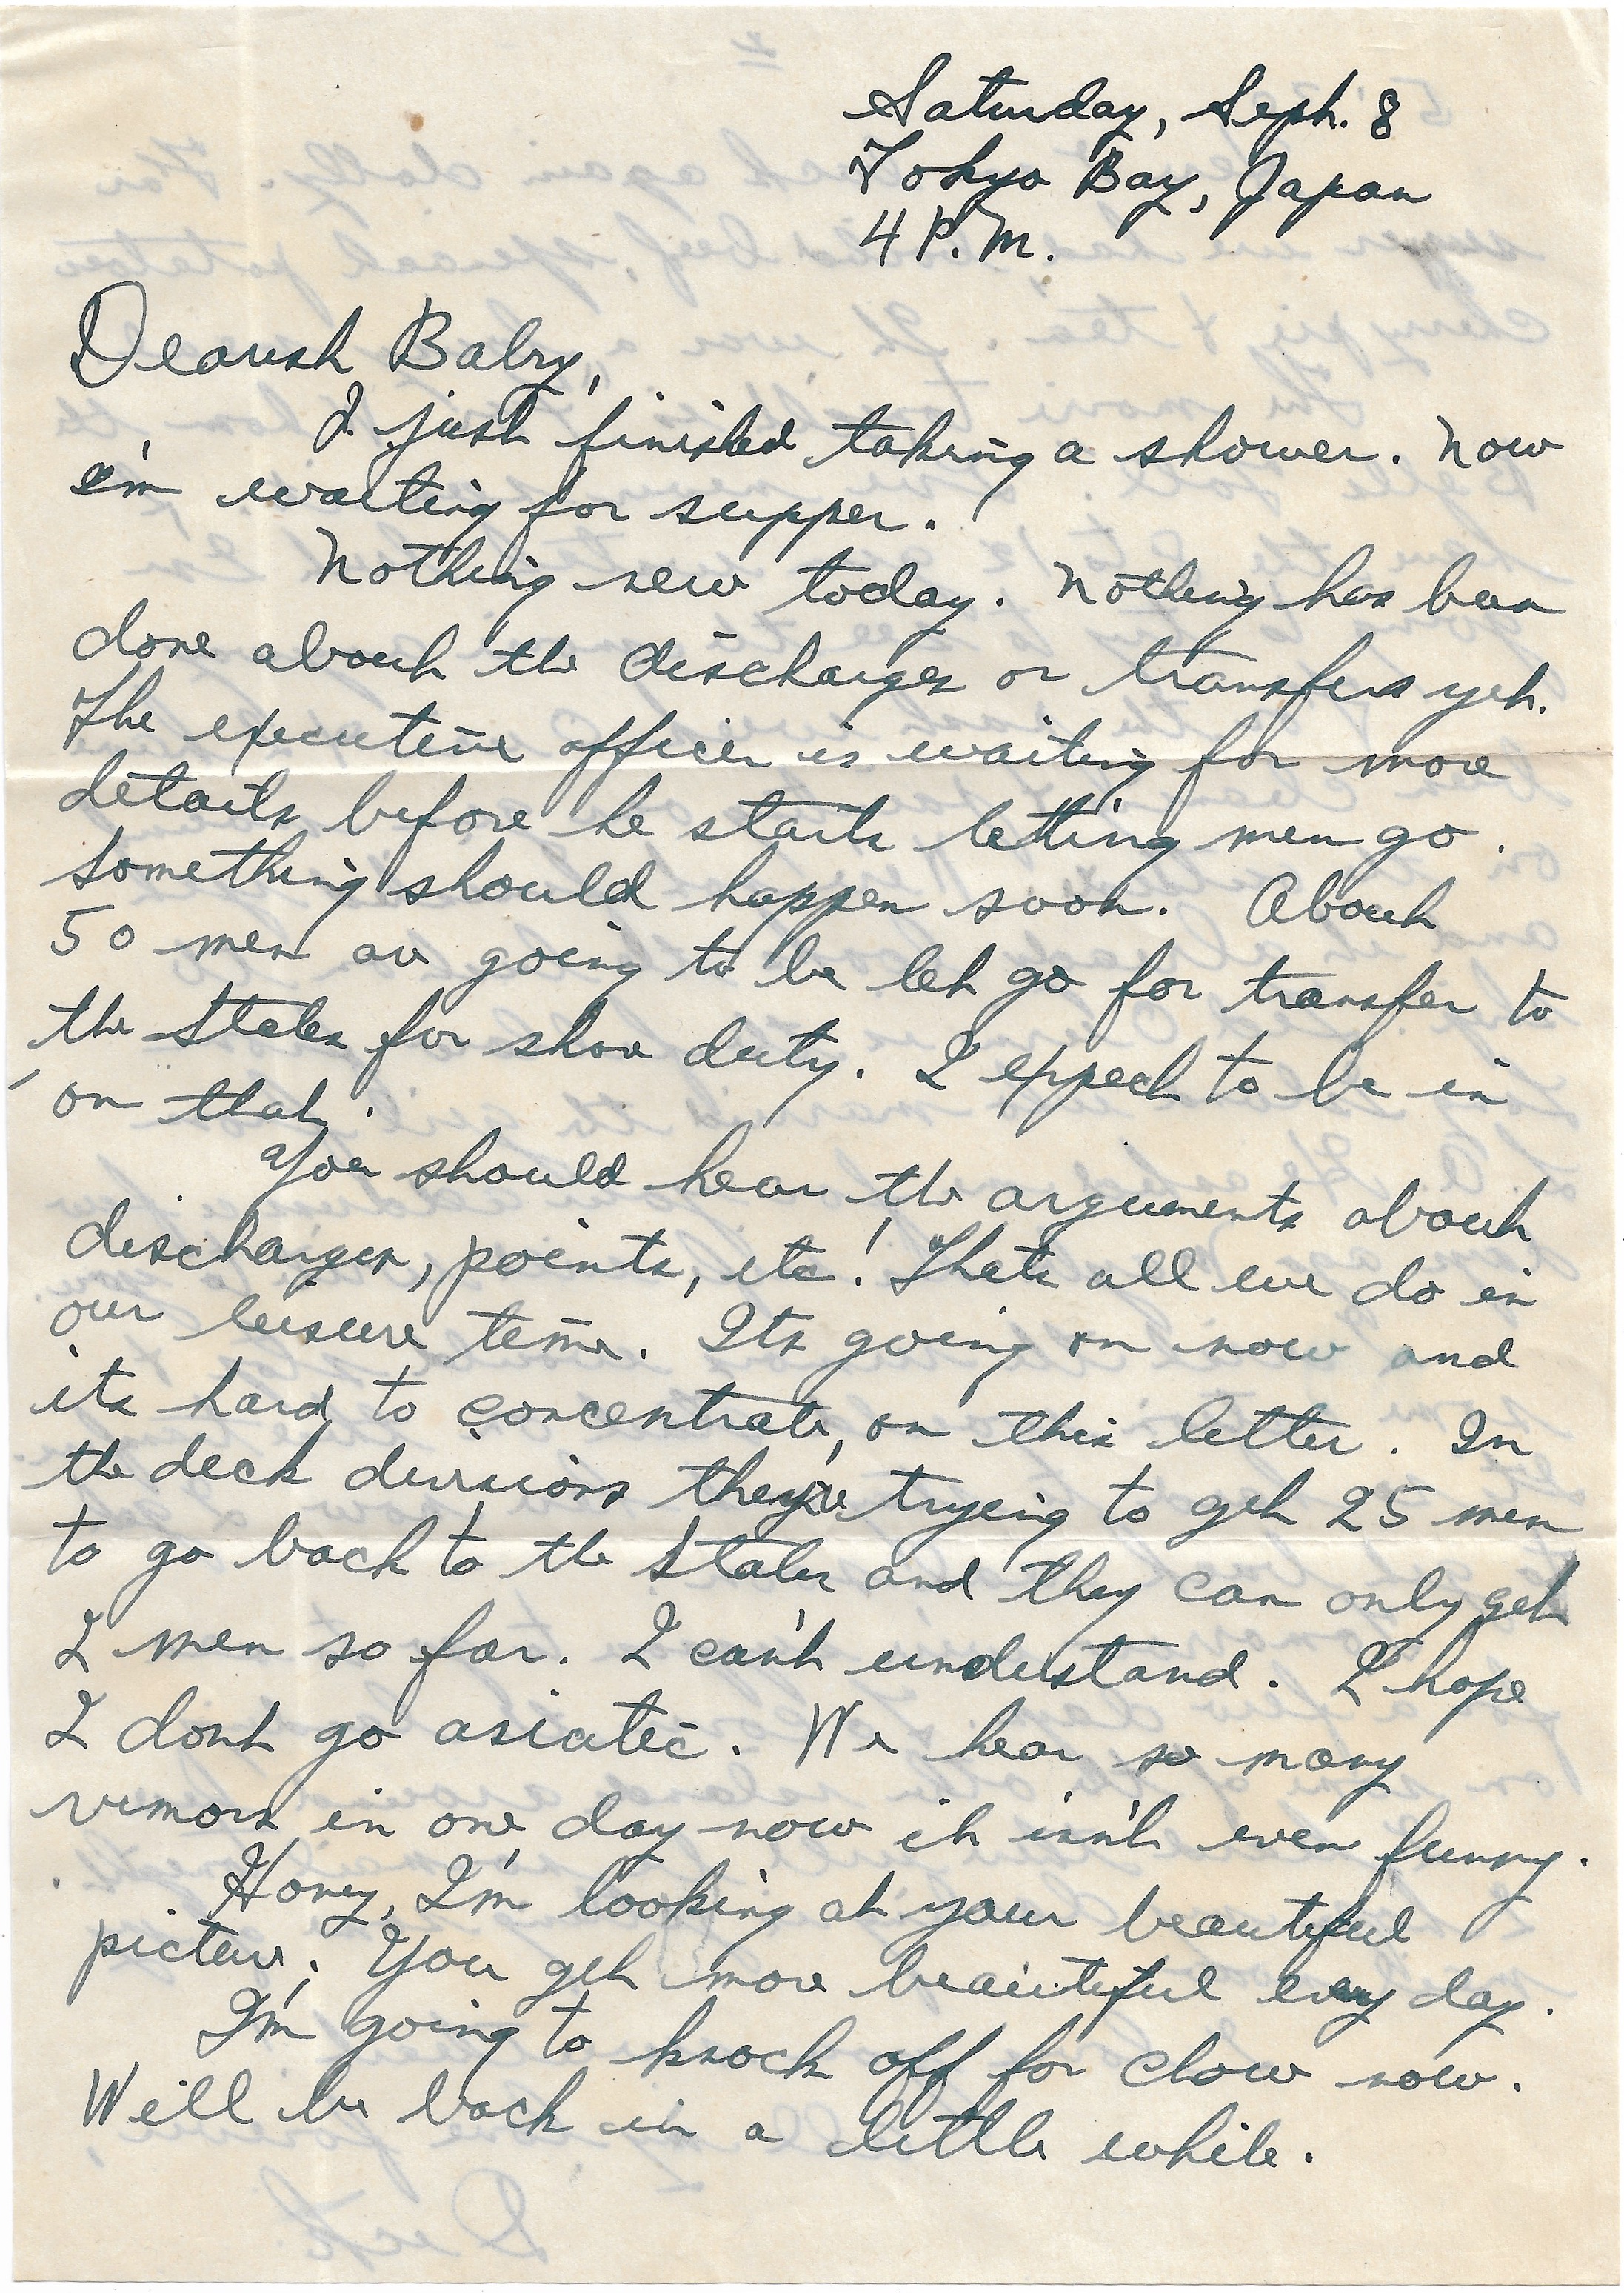 Saturday, Sept. 8
Tokyo Bay, Japan
4 P.M.
Dearest Baby,
I just finished taking a shower. Now
I'm waiting for supper.
Nothing new today. Nothing has been
done about the discharges or transfers yet.
The executive officer is waiting for more
details before he starts letting men go.
Something should happen soon. About
50 men are going to be let go for transfer to
the States for shore duty. I expect to be in
on that.
You should hear the arguments about
discharges, points, etc! Thats all we do in
our leisure time. Its going on now and
its hard to concentrate, on this letter. In
the deck divisions they're trying to get 25 men
to go back to the States and they can only get
2 men so far. I can't understand. I hope
I dont go asiatic. We hear so many
rumors in one day now it isn't even funny.
Honey, I'm looking at your beautiful
picture. You get more beautiful every day.
I'm going to knock off for chow now.
Will be back in a little while.